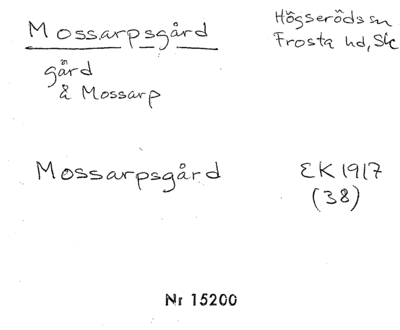 Mossarpsgård
Högseröds sn
Frosta hd, Sk
gård
å Mossarp
Mossarpsgård
EK 1917
(38)
Nr 15200